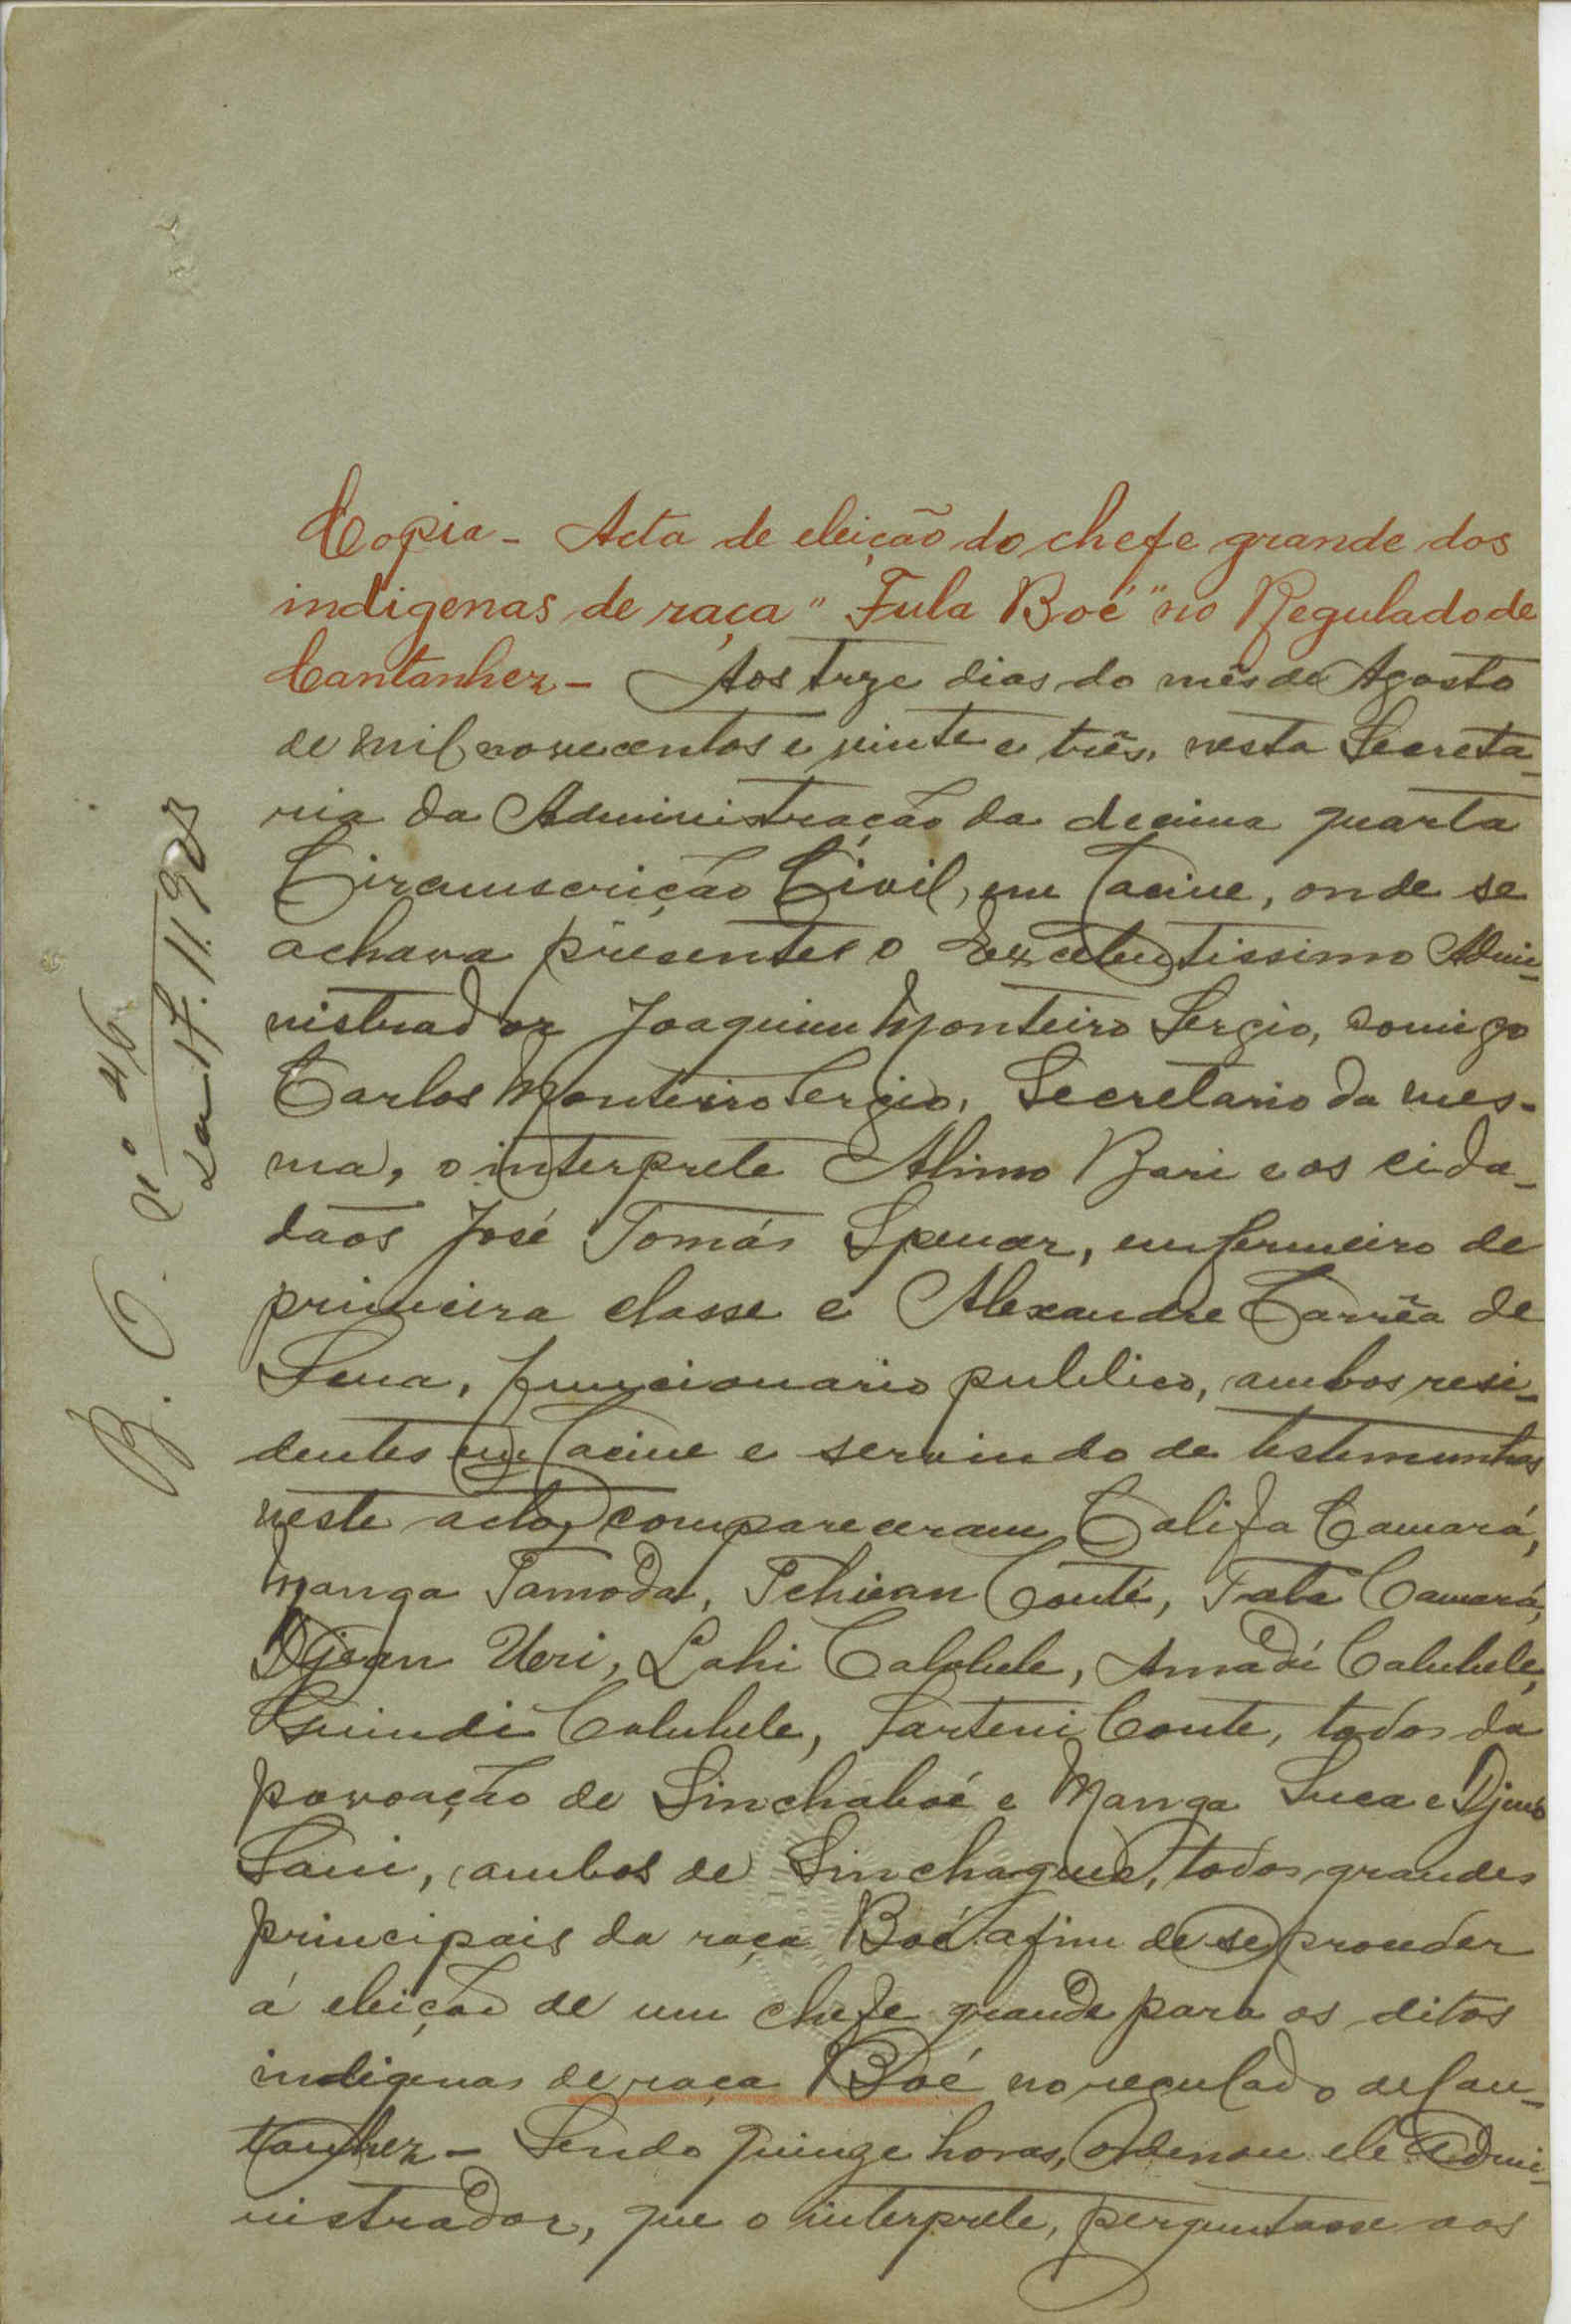 Copia - Acta de eleição do chefe grande dos
indigenas de raça "Fula Boé" no Regulado de
Cantanhez - Aos treze dias do mês de Agosto
de mil novecentos e vinte e três, nesta Secreta-
ria da Administração da decima quarta
Circumscrição Civil, em Cacine, onde se
achava presentes o Excelentissimo Admi-
nistrador Joaquim Monteiro Sergio, comigo
Carlos Monteiro Sergio, Secretario da mes-
ma, o interprete Alimo Bari e os cida-
dãos José Tomás Spencer, enfermeiro de
primeira classe e Alexandre Corrêa de
Sena, funcionario publico, ambos resi-
dentes em Cacine e servindo de testemunhas
neste acto, compareceram Califa Camará,
Manga Tamoda, Conté, Camará,
Djean Lahi Amadi
Conte, todos da
povoação de Sinchaboé e Manga Suca e
Sani, ambos de todos grandes
principais da raça Boé afim de se proceder
á eleição de um chefe grande para os ditos
indigenas de raça Boé no regulado de Can-
tanhez - Sendo quinze horas, ordenou ele Admi-
nistrador, que o interprete, perguntasse aos
B. O. nº 46
de 17.11.923